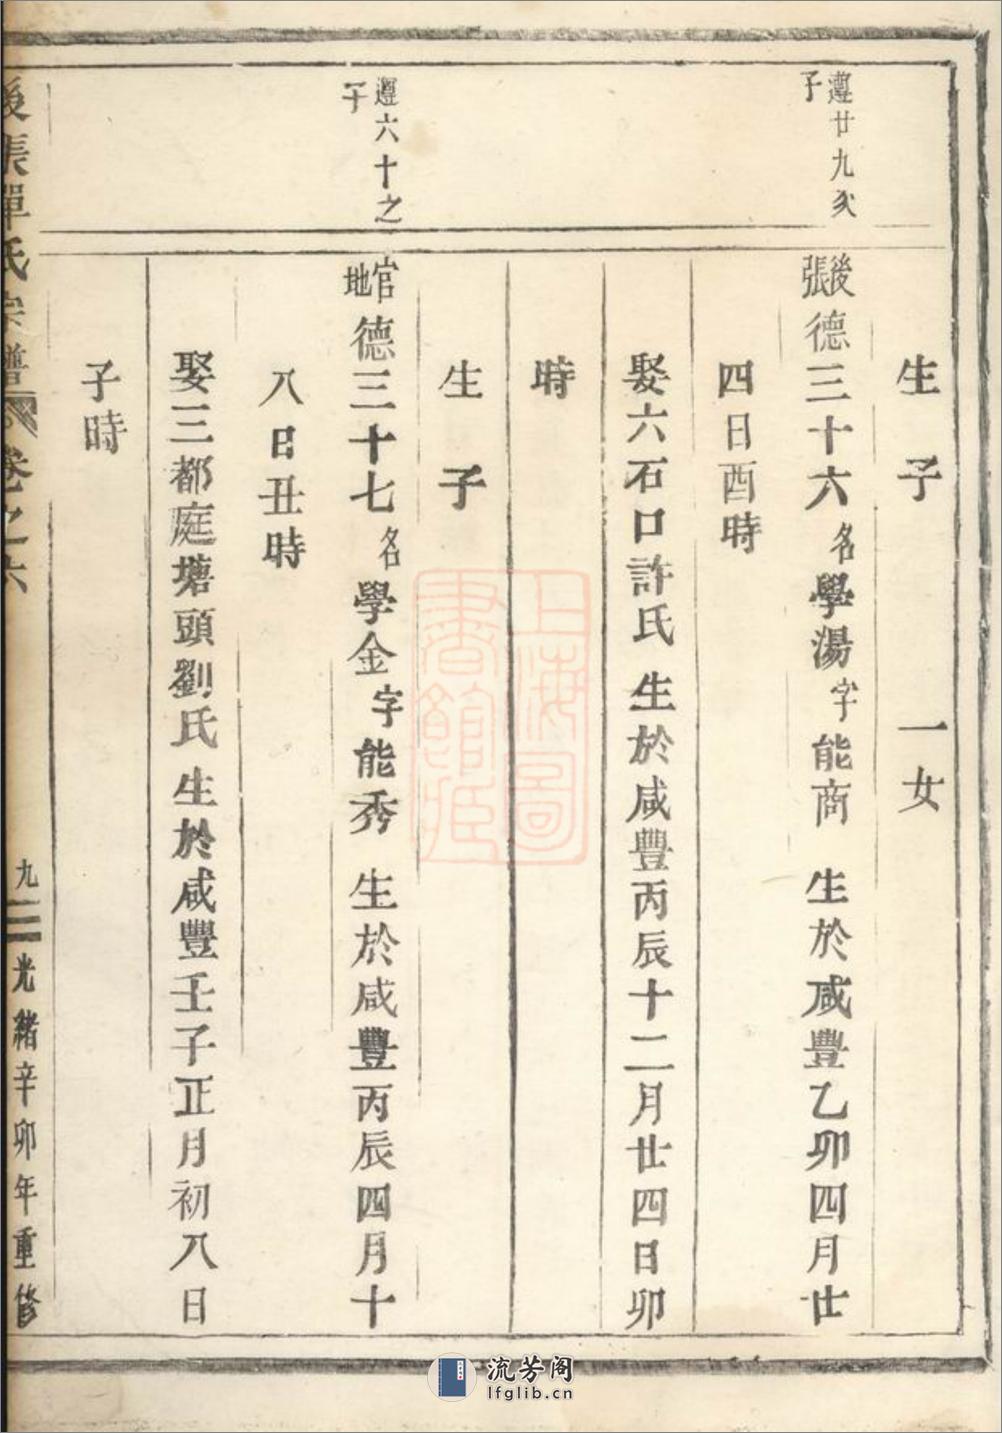 遵廿九次
子
生子 一女
後張德三十六名學湯字能商 生於咸豐乙卯四月廿
四日酉時
娶六石口許氏 生於咸豐丙辰十二月廿四日卯
時
生子
遵六十之
子
官地德三十七名學金字能秀 生於咸豐丙辰四月十
八日丑時
娶三都庭塘頭劉氏 生於咸豐壬子正月初八日
子時
後張單氏宗譜 卷之六
九 光緒辛卯年重修
上海圖
書館藏
流芳阁
lfglib.cn